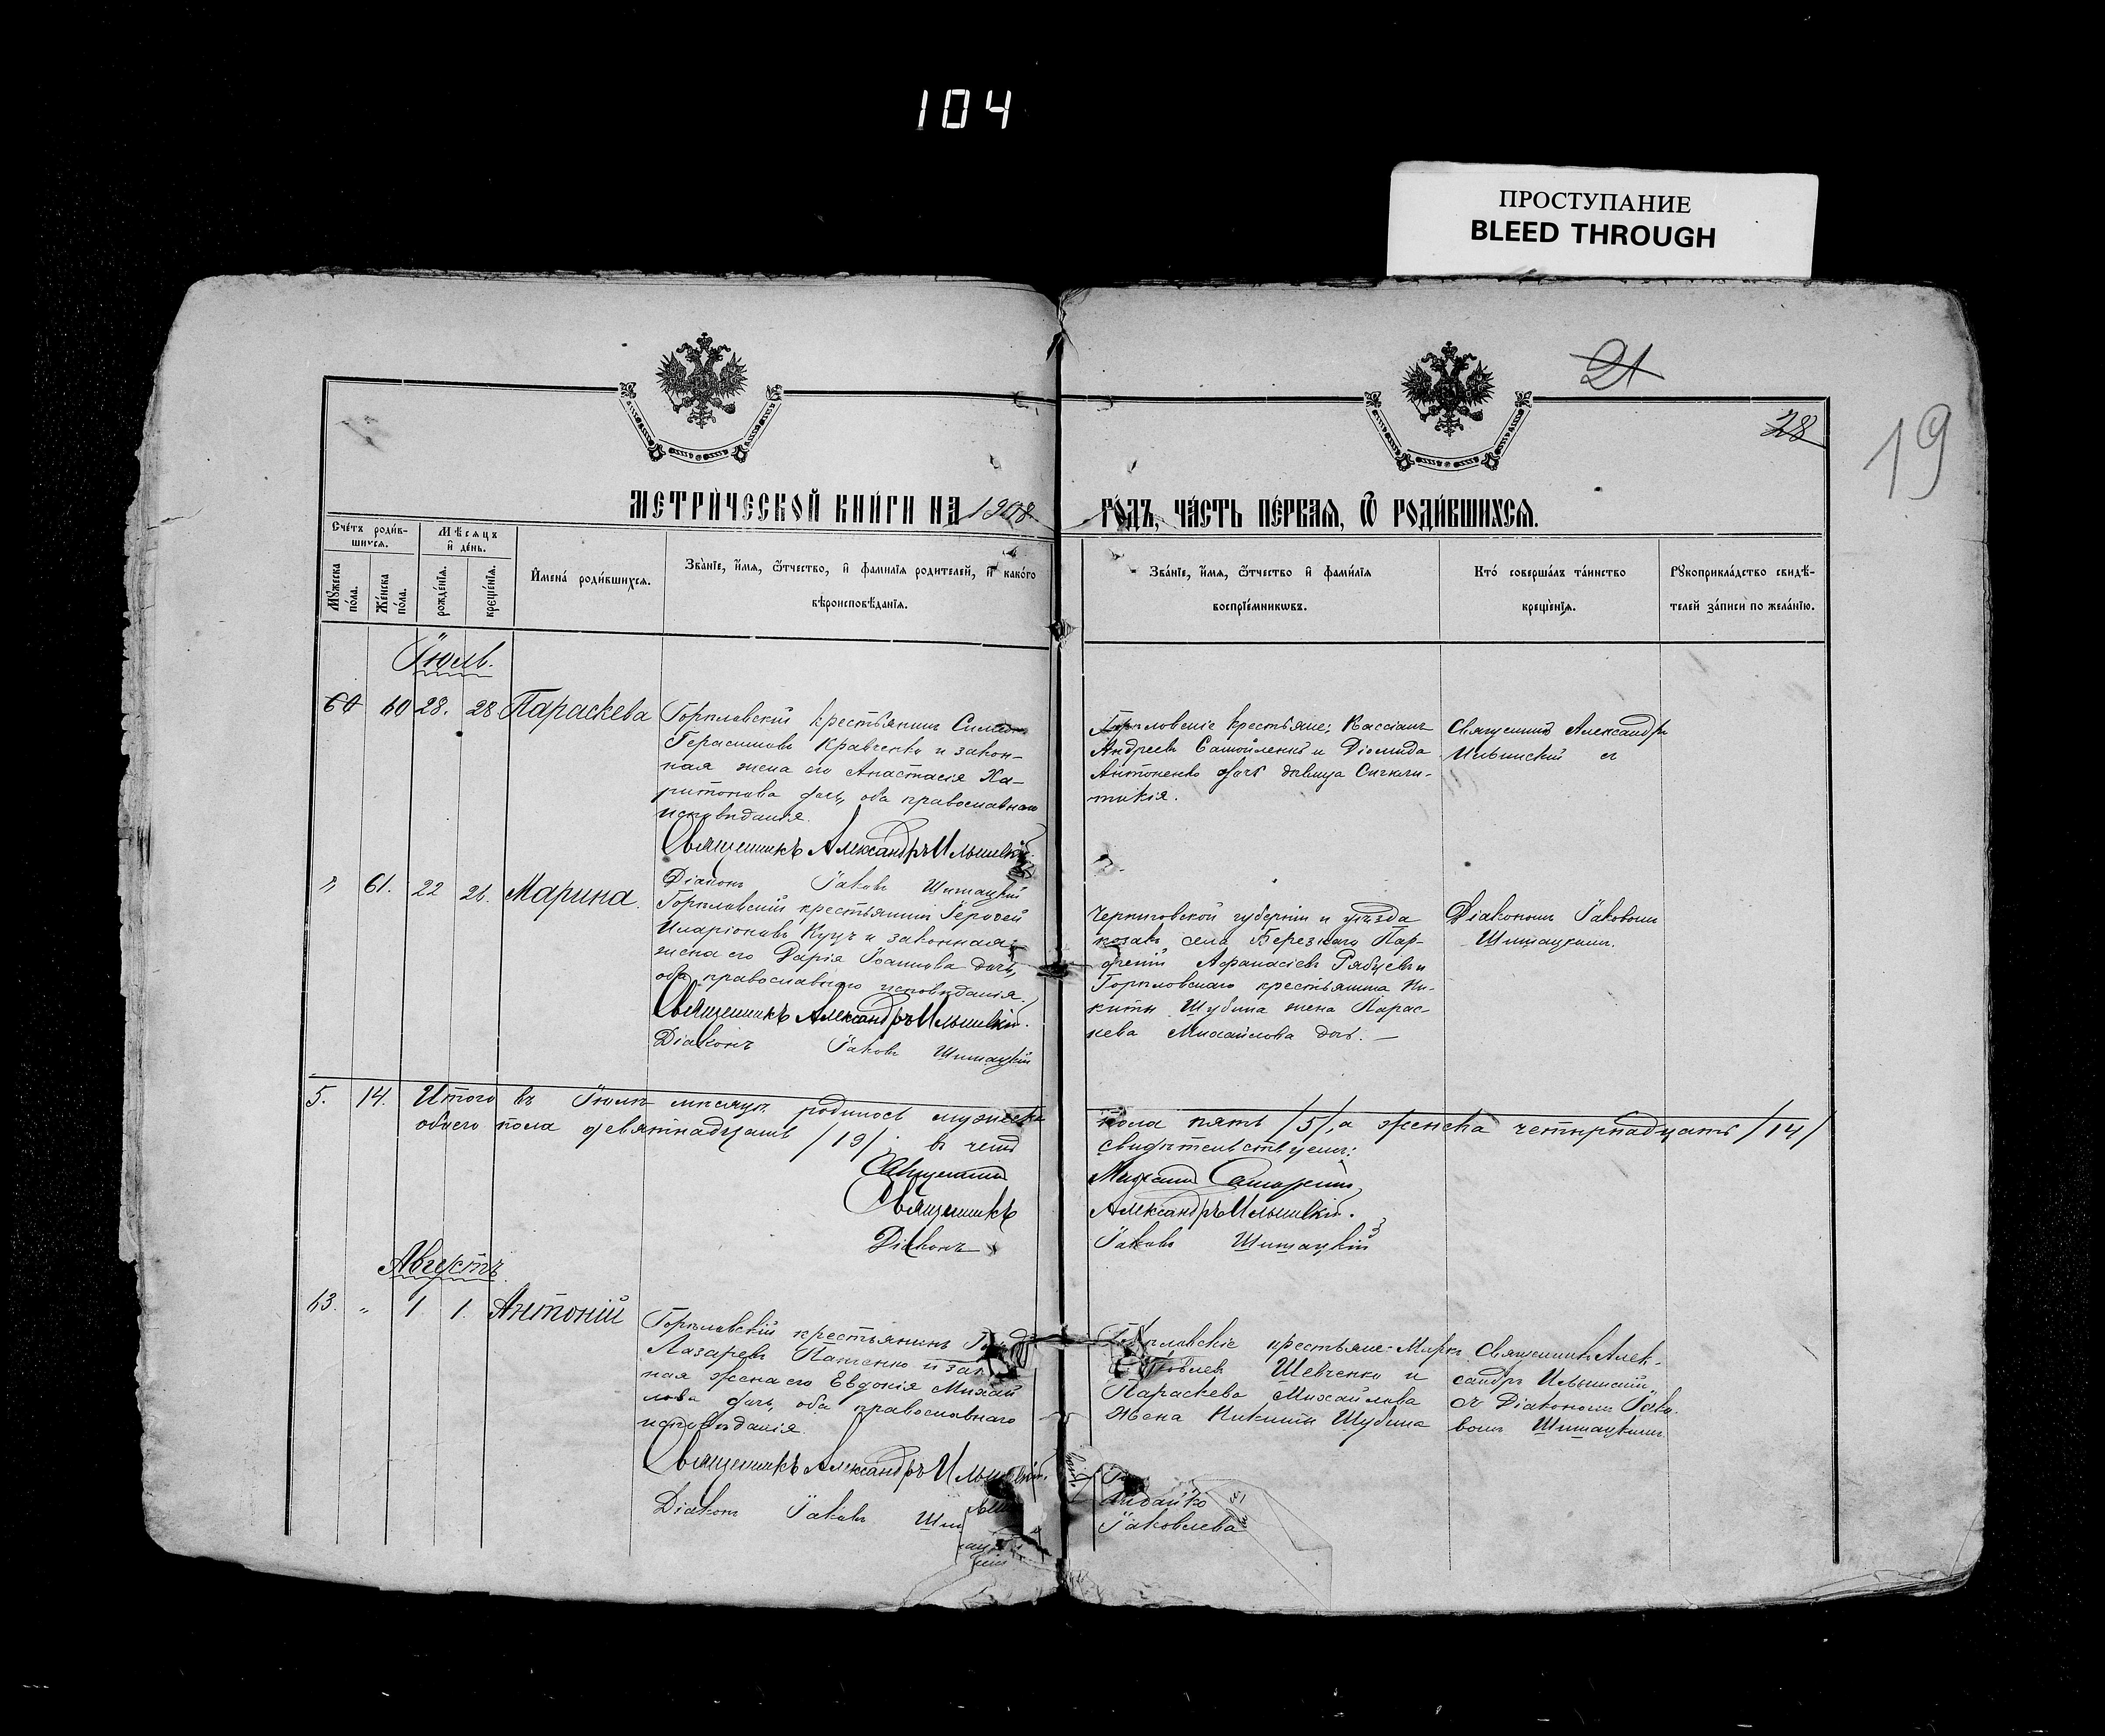 104
ПРОСТУПАНИЕ
BLEED THROUGH
21
28
19
МЕТРИ́ЧЕСКОЙ КНИ́ГИ НА 1908
ГО́ДЪ, ЧА́СТЬ ПЕ́РВАѦ, Ѿ РОДИ́ВШИХСѦ.
Сче́тъ роди́в-
шихсѧ.
Мѣсѧцъ
й де́нь.
Мꙋжеска по́ла.
Же́нска по́ла.
рожде́нїѧ.
креще́нїѧ.
Имена́ роди́вшихсѧ.
Зва́нїе, и́мѧ, ѻ҆́тчество, и҆ фами́лїѧ родителей, и҆ како́го
вѣроисповѣ́данїѧ.
Зва́нїе, и́мѧ, ѻ҆́тчество и҆ фами́лїѧ
воспрїе́мникѡвъ.
Кто́ соверша́лъ та́инство
креще́нїѧ.
Рꙋкоприкла́дство свидѣ́-
телей за́писи по жела́нїю.
Іюль.
60 60 28. 28 Параскева
Горкловскій крестьянинъ Симеонъ
Герасимовъ Кравченко и закон-
ная жена его Анастасія Ха-
ритонова дочь, оба православнаго
исповѣданія.
Священникъ Александръ Ильинскій.
Діаконъ Іаковъ Шишацкій
крестьяне: Кассіанъ
Андреевъ Самойленко и Діомида
Антоненко дочь дѣвица Синкли-
тикія.
Священникъ Александръ
Ильинскій
" 61. 22 26. Марина.
крестьянинъ Іерофей
Иларіоновъ Куцъ и законная
жена его Дарія Іоаннова дочь,
оба православнаго исповѣданія.
Священникъ Александръ Ильинскій.
Діаконъ Іаковъ Шишацкій
Черниговской губерніи и уѣзда
козакъ села Березнаго Пар-
феній Афанасіевъ Рябцевъ и
крестьянина Ни-
киты Шубина жена Парас-
кева Михайлова дочь. —
Діакономъ Іаковомъ
Шишацкимъ.
5. 14. Итого въ Іюлѣ мѣсяцѣ родилось мужеска
пола пять /5/, а женска четырнадцать /14/
обоего пола девятнадцать /19/; въ чемъ
свидѣтельствуемъ:
Священникъ
Михаилъ
Священникъ
Александръ Ильинскій.
Діаконъ
Іаковъ Шишацкій
Августъ.
63. " 1. 1. Антоній
крестьянинъ
Лазаревъ Панченко и закон
ная жена его Евдокія Михай
лова дочь, оба православнаго
исповѣданія.
Священникъ Александръ Ильинскій.
Діаконъ Іаковъ Шиш
крестьяне: Маркъ
Шевченко и
Параскева Михайлова
жена Никиты Шубина
Священникъ Алек-
сандръ Ильинскій
съ Діакономъ Іако-
вомъ Шишацкимъ.
Іаковлева